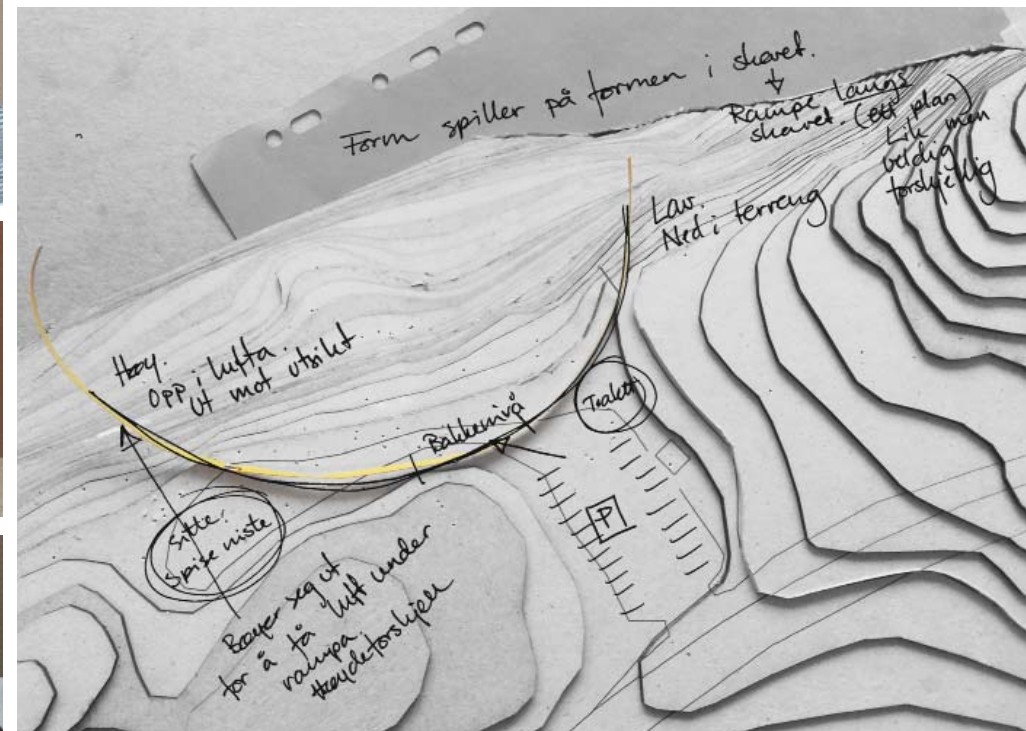 Form spiller på formen i skaret.
Rampe langs
skaret. (ett plan)
Lik men
veldig
forskjellig
Lav.
Ned i terreng
Høy.
Opp i lufta.
Ut mot utsikt
Bakkenivå
Toalett
P
Sitte.
Spise niste
Bøyer seg ut
for å få luft under
rampa.
Høydeforskjell